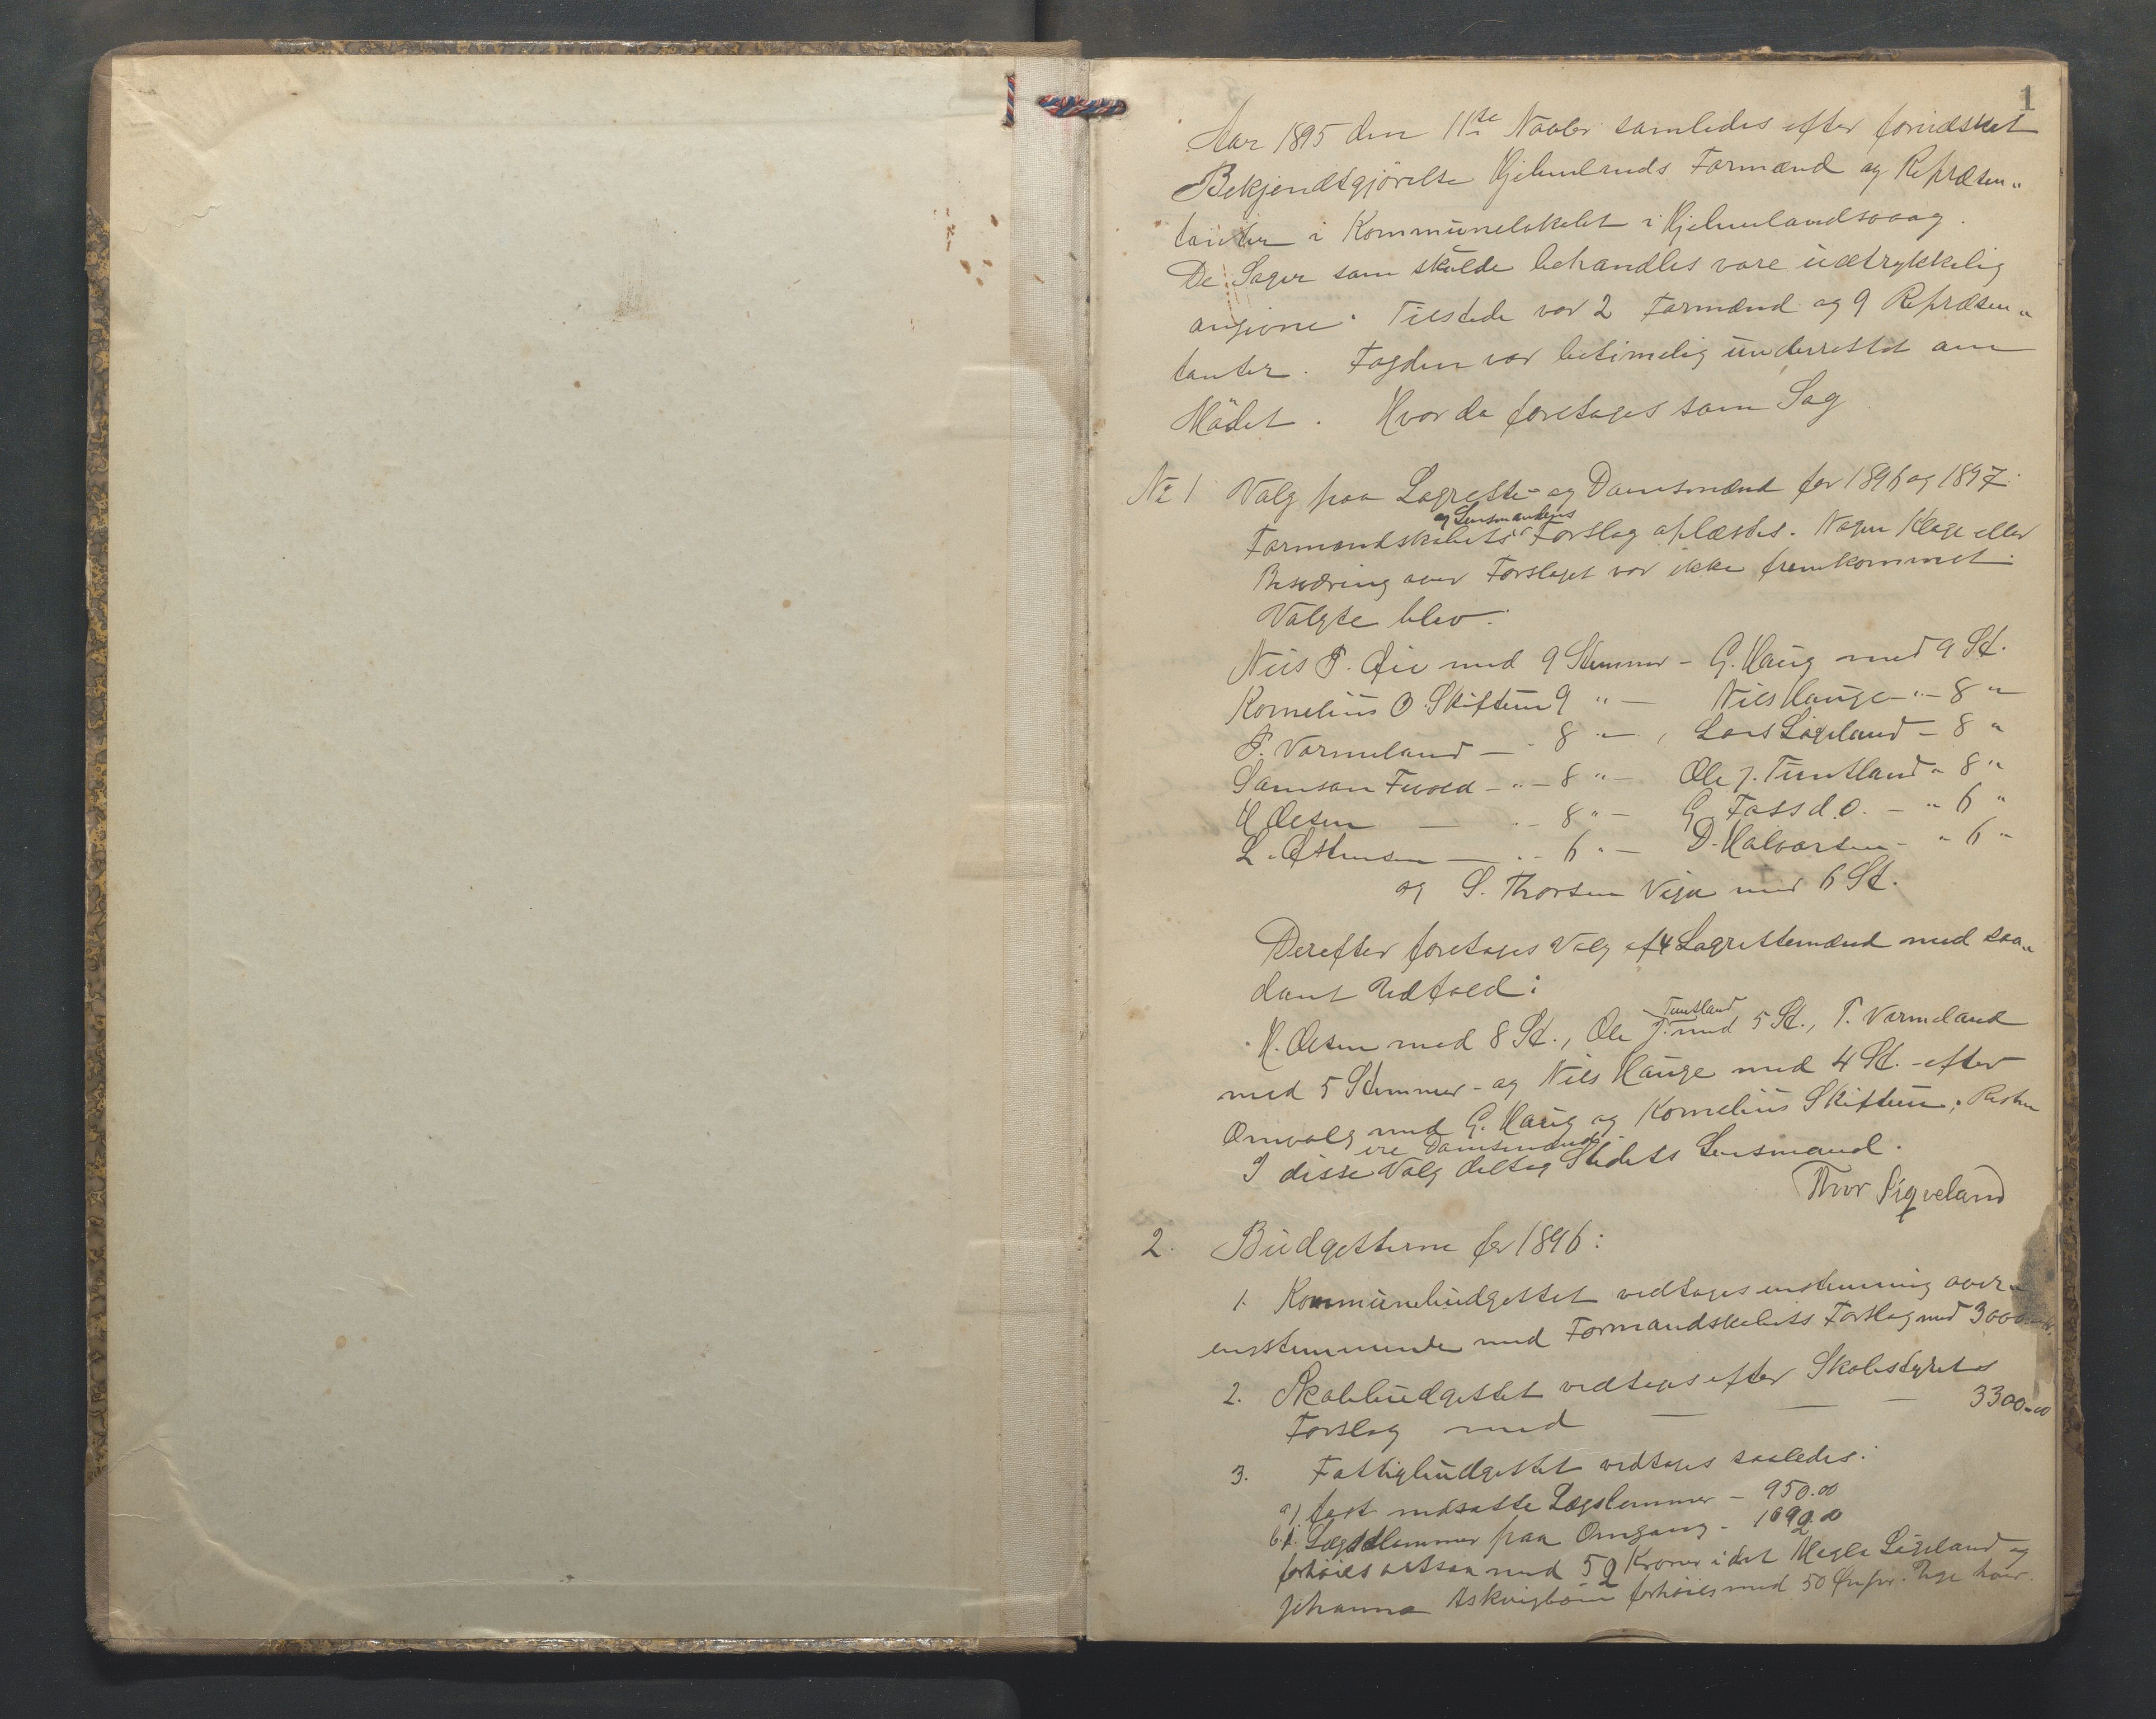 1
Aar 1895 den 11te Novbr samledes efter forudskikket
Bekjendtgjörelse Hjelmelands Formænd og Repræsen„
tanter i Kommunelokalet i Hjelmelandsvaag.
De Sager som skulde behandles vare udtrykkelig
angivne. Tilstede var 2 Formænd og 9 Repræsen„
tanter. Fogden var betimelig underrettet om
Mödet. Hvor da foretages som Sag
No 1 Valg paa Lagrette- og Domsmænd for 1896 og 1897.
og Lensmandens
Formandskabets Forslag oplæstes. Nogen Klage eller
Besværing over Forslaget var ikke fremkommet.
Valgte blev:
Nils P. Øie med 9 Stemmer - G. Haug med 9 St.
Kornelius O. Skiftun 9 " — Nils Hauge - " - 8 "
P. Vormeland — " 8 " — , Lars Ligeland - 8 "
Samson Fevold - " - 8 " - Ole J. Tuntland " 8 "
H. Olsen — " - 8 " - G. Fossd. O. - " 6 "
L. Østensen — " - 6 " - D. Halvorsen - " 6 "
og S. Thorsen Viga med 6 St.
Derefter foretages Valg af 4 Lagrettemænd med saa„
dant Udfald:
Tuntland
H. Olsen med 8 St., Ole J. med 5 St., P. Vormeland
med 5 Stemmer - og Nils Hauge med 4 St. - efter
Omvalg med G. Haug og Kornelius Skiftun. Resten
ere Domsmænd.
I disse Valg deltog Stedets Lensmand.
Thor Sigveland
2. Budgetterne for 1896:
1. Kommunebudgettet vedtages enstemmig over„
ensstemmende med Formandskabets Forslag med 3000
2. Skolebudgettet vedtages efter Skolestyrets
Forslag med — — - 3300.00
3. Fattigbudgettet vedtages saaledes:
a) fast indsatte Lægslemmer - 950.00
b). Lægdslemmer paa Omgang - 1092.00
forhöies altsaa med 52 Kroner idet Megla Ligeland og
Johanna Askvigbøen forhöies med 50 Øre pr. Uge hver.